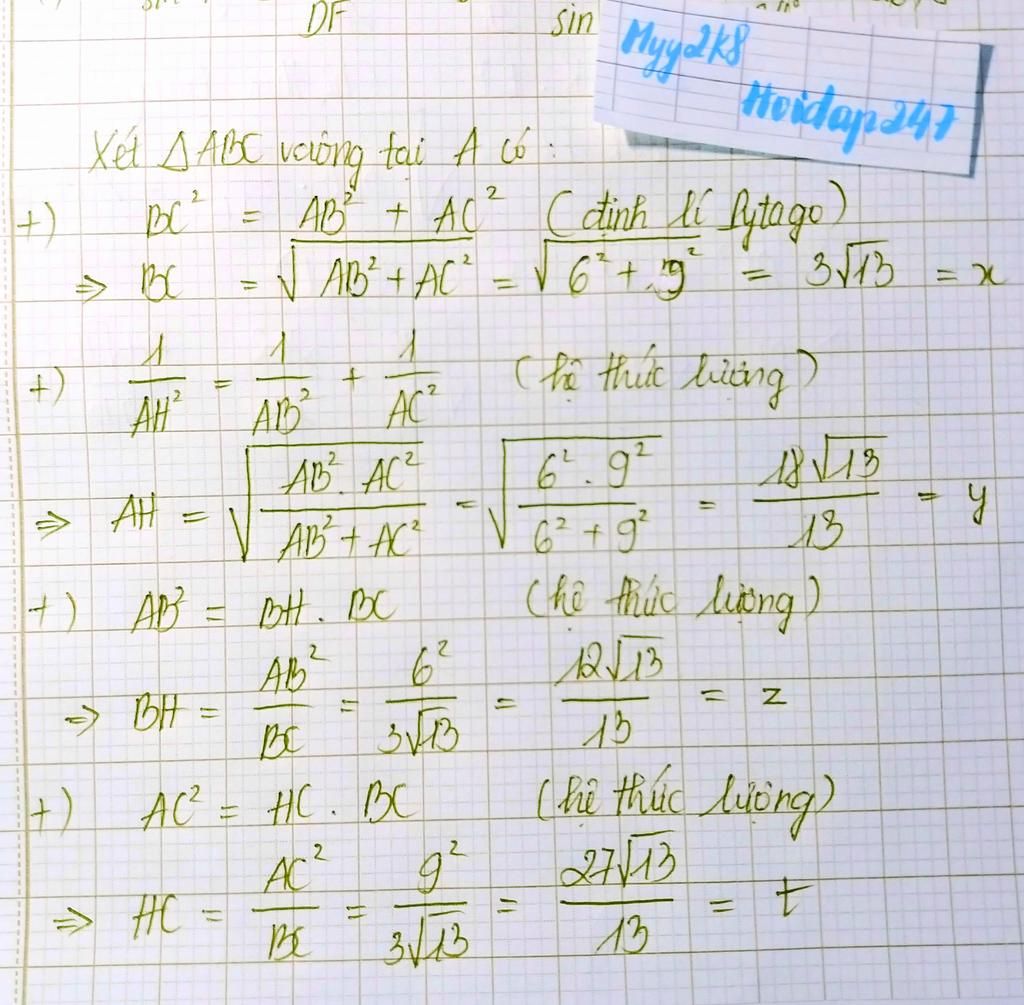 DF sin
Myy2k8
Hoidap247
Xét △ABC vuông tại A có:
+) BC² = AB² + AC² (định lí Pytago)
⇒ BC = √(AB² + AC²) = √(6² + 9²) = 3√13 = x
+) 1/AH² = 1/AB² + 1/AC² (hệ thức lượng)
⇒ AH = √((AB² . AC²)/(AB² + AC²)) = √((6² . 9²)/(6² + 9²)) = 18√13/13 = y
+) AB² = BH . BC (hệ thức lượng)
⇒ BH = AB²/BC = 6²/3√13 = 12√13/13 = z
+) AC² = HC . BC (hệ thức lượng)
⇒ HC = AC²/BC = 9²/3√13 = 27√13/13 = t